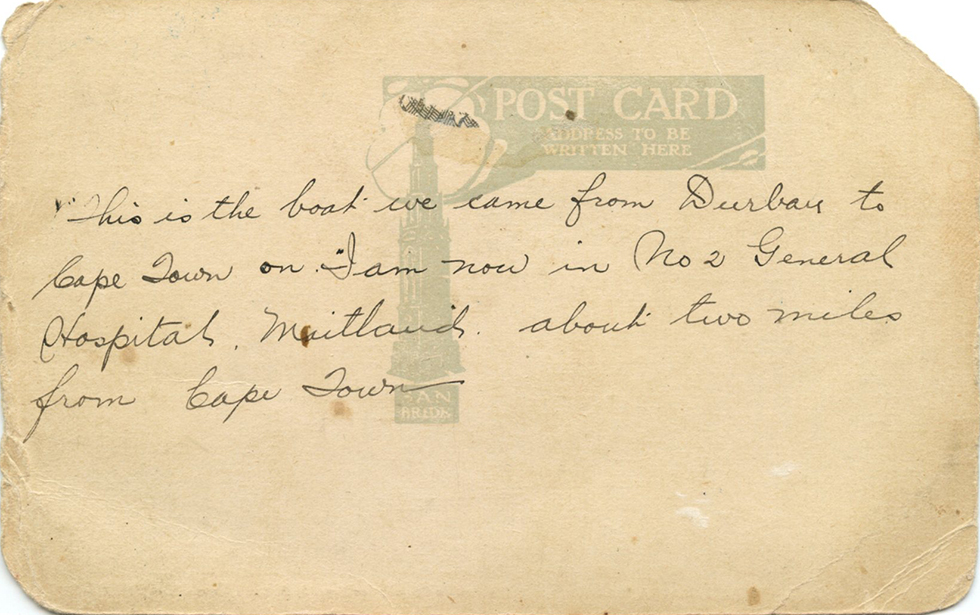 POST CARD
ADDRESS TO BE
WRITTEN HERE
"This is the boat we came from Durban to
Cape Town on. I am now in No 2 General
Hospital, Maitland. about two miles
from Cape Town
SAN
BRIDE